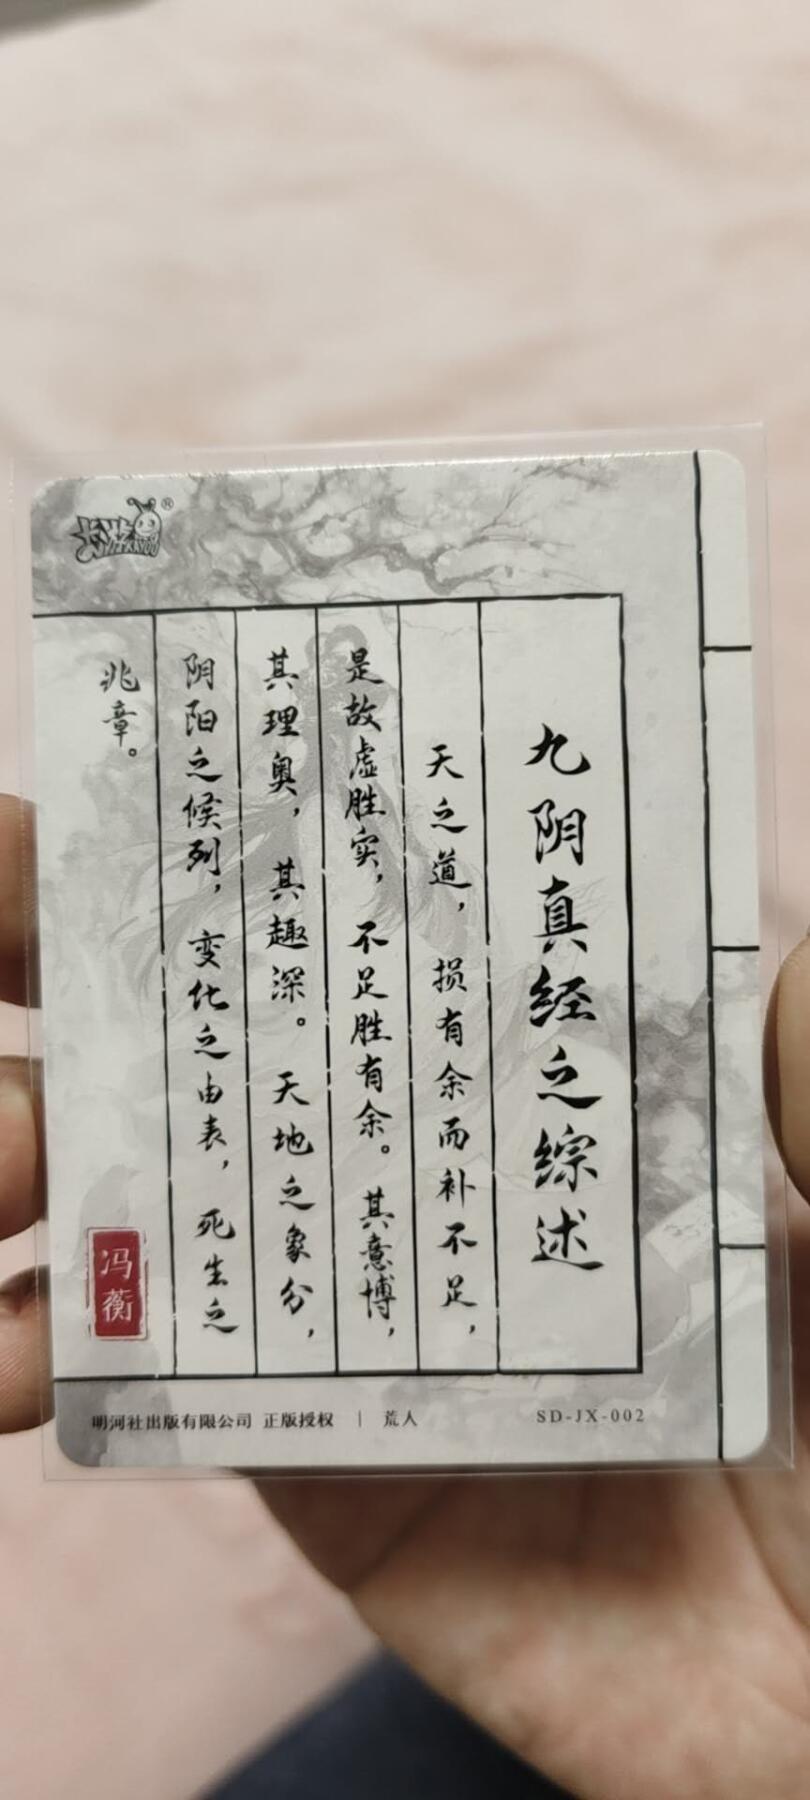 九阴真经之综述
天之道，损有余而补不足，
是故虚胜实，不足胜有余。其意博，
其理奥，其趣深。天地之象分，
阴阳之候列，变化之由表，死生之
兆章。
冯蘅
卡游
KAYOU
®
明河社出版有限公司 正版授权 | 荒人
SD-JX-002